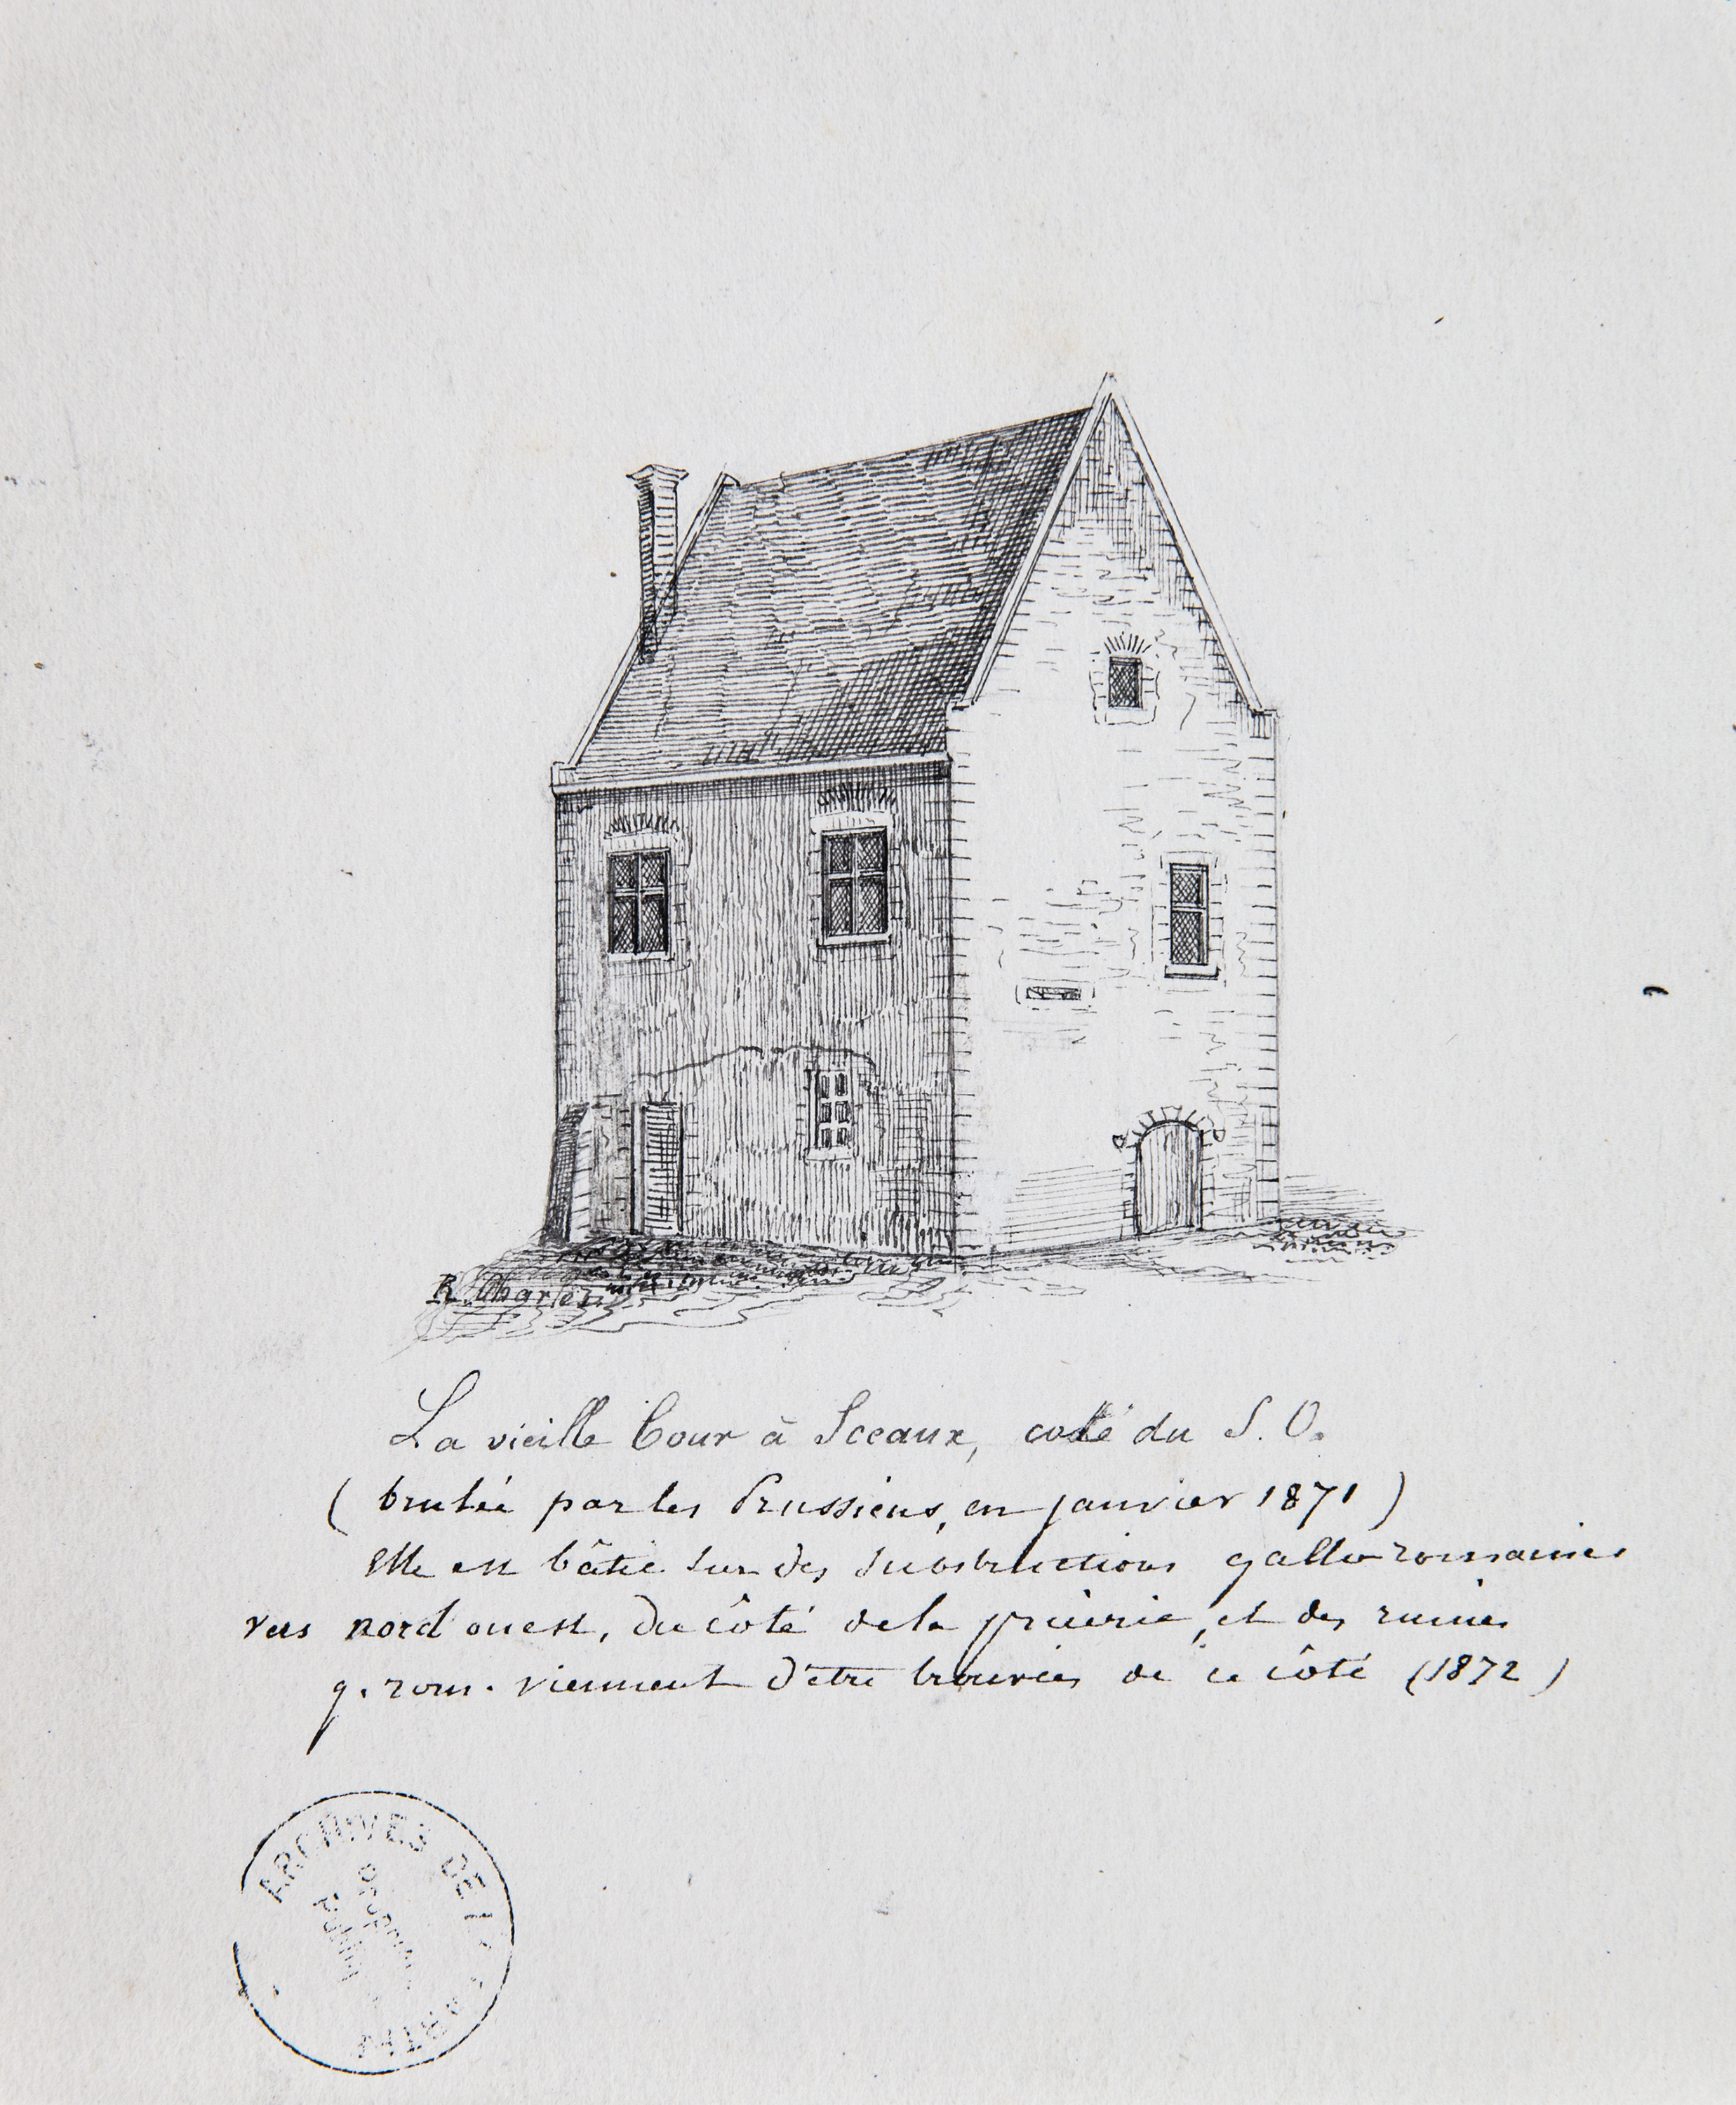 R. Charles
La vieille Cour à Sceaux, coté du S. O.
( brulée par les Prussiens, en janvier 1871 )
Elle est bâtie sur des substructions gallo romaines
vers nord ouest, du côté de la prairie, et des ruines
g. rom. viennent d'être trouvées de ce côté (1872)
ARCHIVES DE LA SARTHE